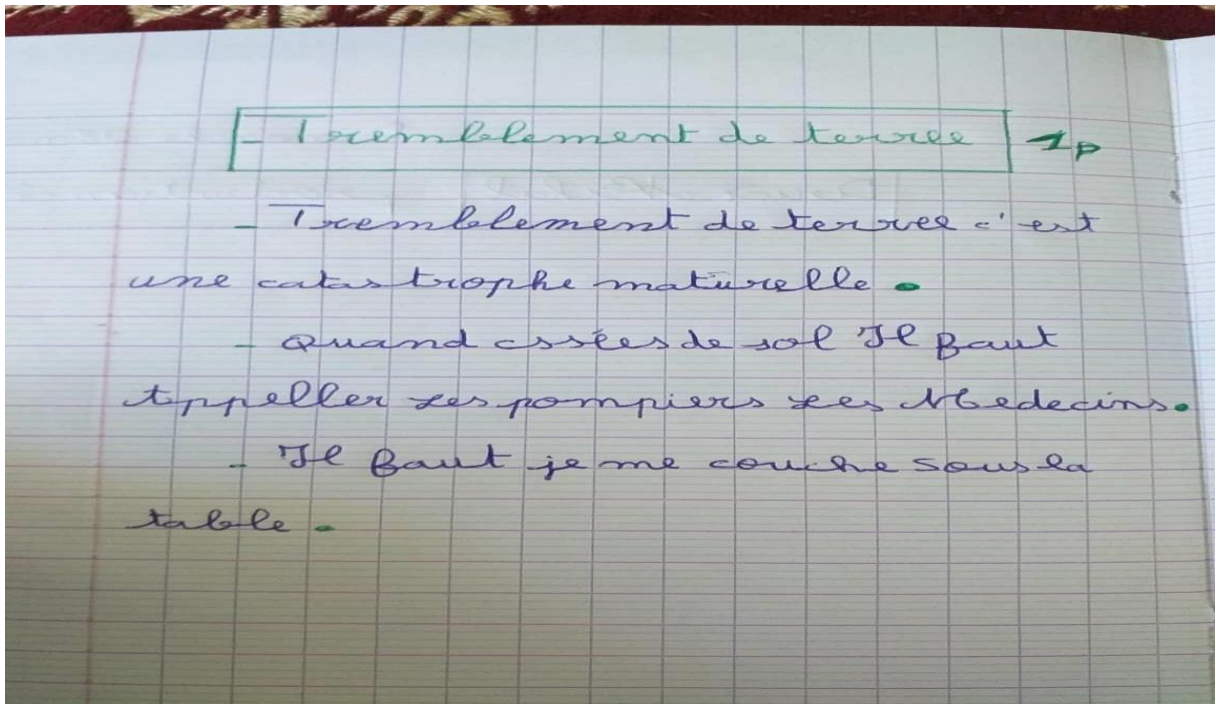 - Tremblement de terree 1p
- Tremblement de terree c'est
une catastrophe maturelle.
- Quand de sol Il Faut
Appeller Les pompiers Les Medecins.
- Il Faut je me couche sous la
table.